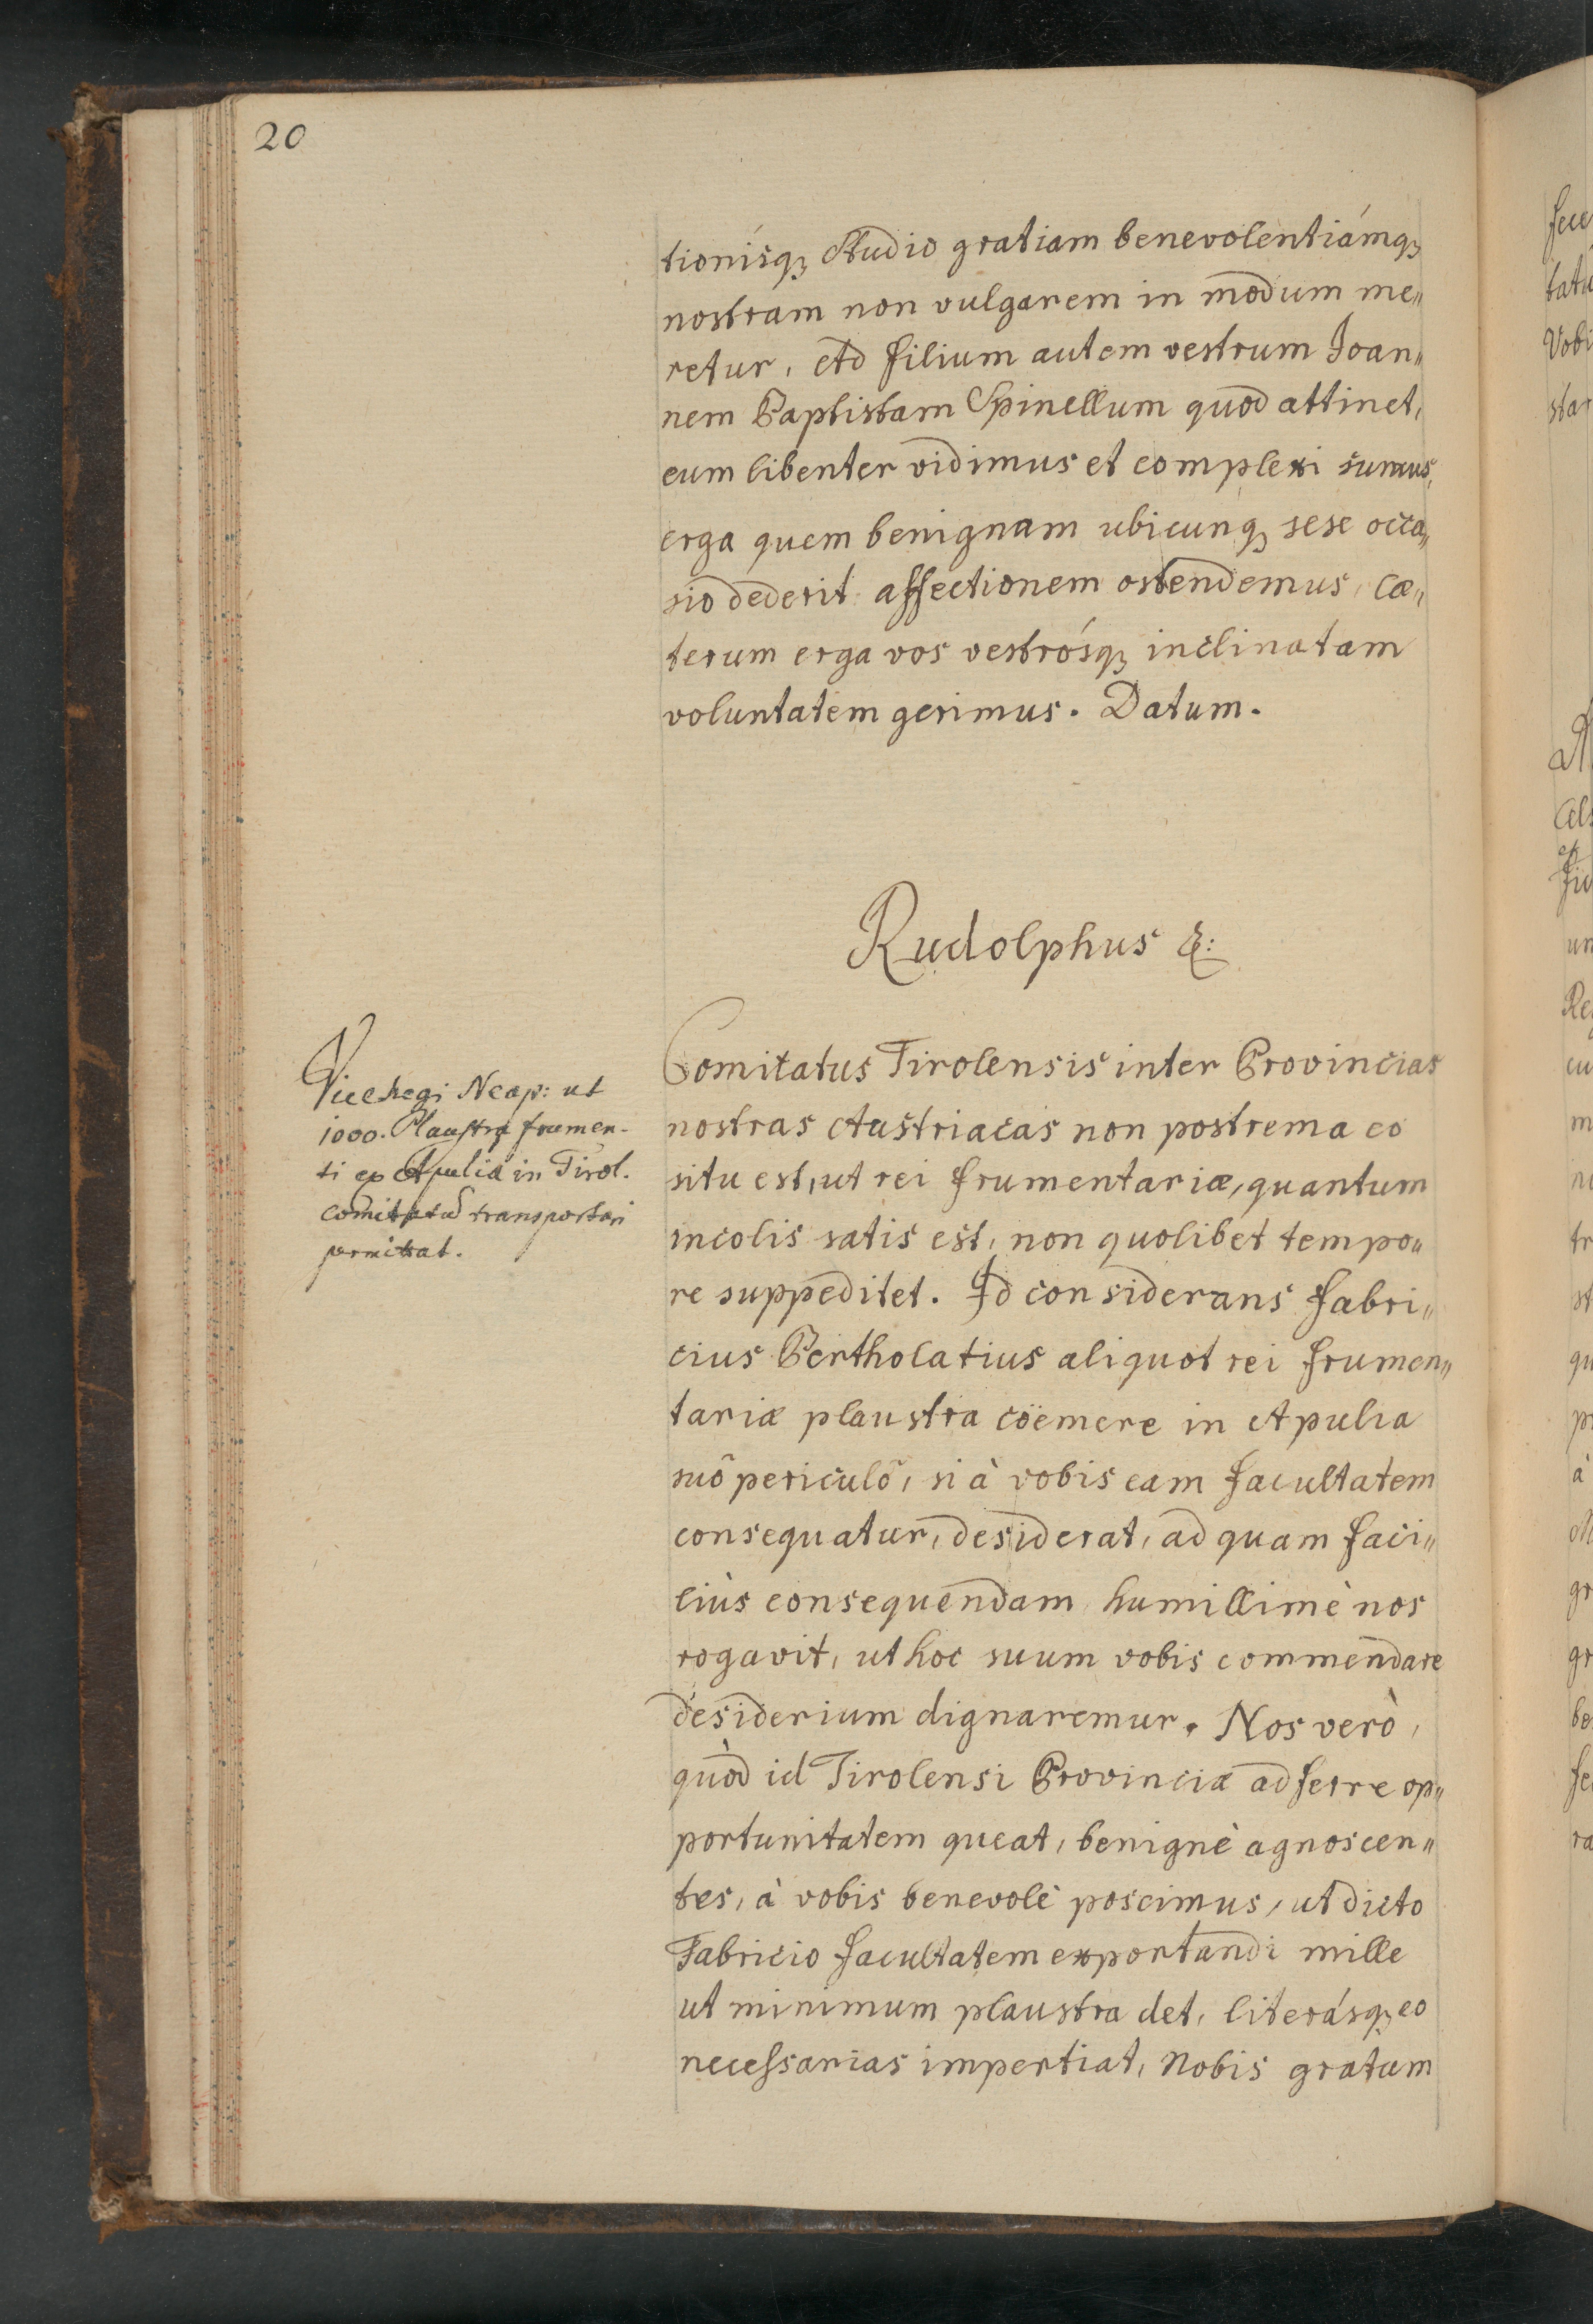 20
tionísq₃ Studio gratiam benevolentiámq₃
nostram non vulgarem in modum me„
retur, Ad filium autem vestrum Joan„
nem Baptistam Spinellum quod attinet,
eum libenter vidimus et complexi sumus,
erga quem benignam ubicunq₃ sese occa„
sio dederit affectionem ostendemus, Cæ„
terum erga vos vestrósq₃ inclinatam
voluntatem gerimus. Datum.
Rudolphus &:
Viceregi Neap: ut
1000. Plaustra frumen-
ti ex Apulia in Tirol.
comitatū transportari
permittat.
Comitatus Tirolensis inter Provincias
nostras Austriacas non postrema eo
situ est, ut rei frumentariæ, quantum
incolis satis est, non quolibet tempo„
re suppeditet. Id considerans Fabri„
cius Bertholatius aliquot rei frumen„
tariæ plaustra coëmere in Apulia
suô periculô, si à vobis eam facultatem
consequatur, desiderat, ad quam faci„
liùs consequendam humillimè nos
rogavit, ut hoc suum vobis commendare
desiderium dignaremur. Nos verò,
quòd id Tirolensi Provinciæ adferre op„
portunitatem queat, benignè agnoscen„
tes, à vobis benevolè poscimus, ut dicto
Fabricio facultatem exportandi mille
ut minimum plaustra det, literásq₃ eo
necessarias impertiat, Nobis gratam